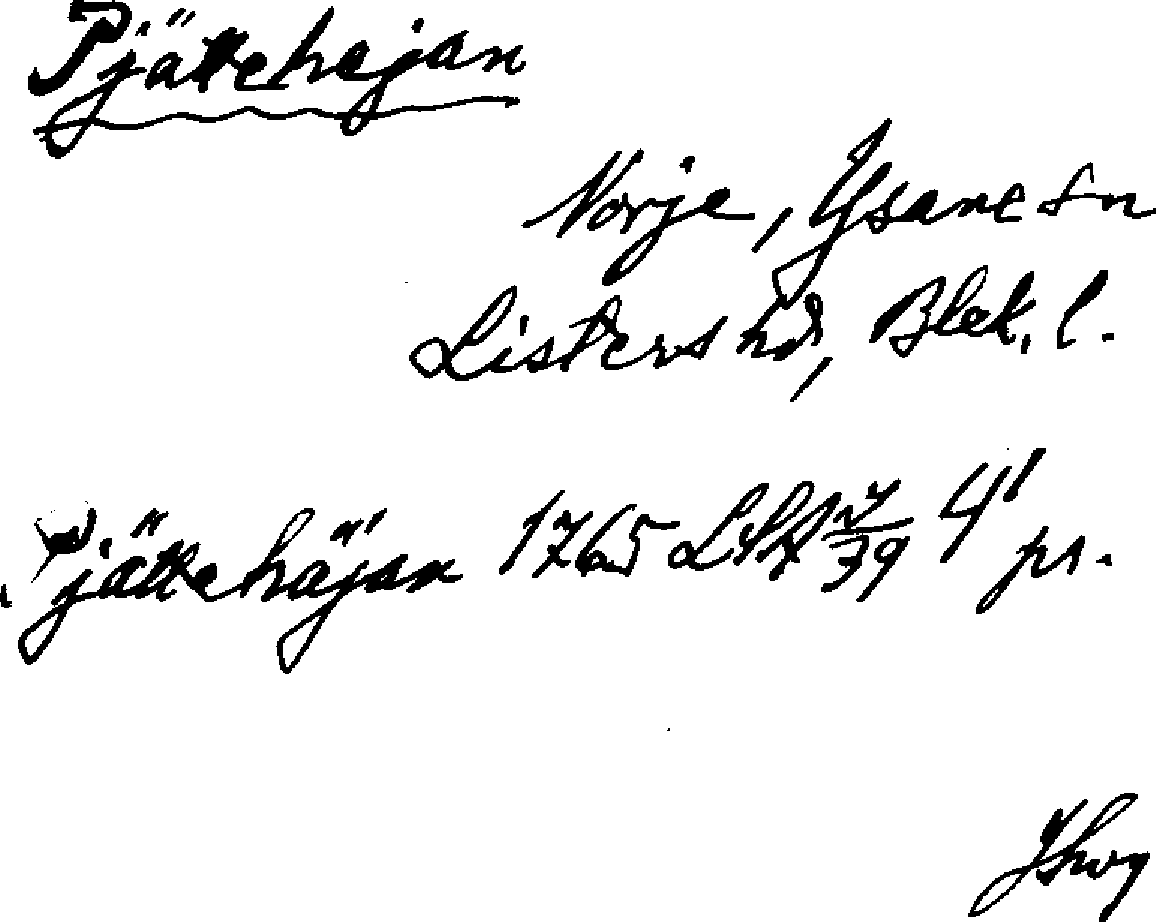 Pjättehejan
Norje, Ysane sn
Listers hd, Blek. l.
Pjättehäjan 1765 LSA Y/39 4¹ ps.